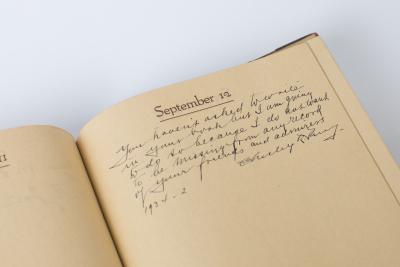 11
September 12
You haven't asked to write
in your book but I am going
to do so because I do not want
to be missing from any record
of your friends and admirers
1934-2